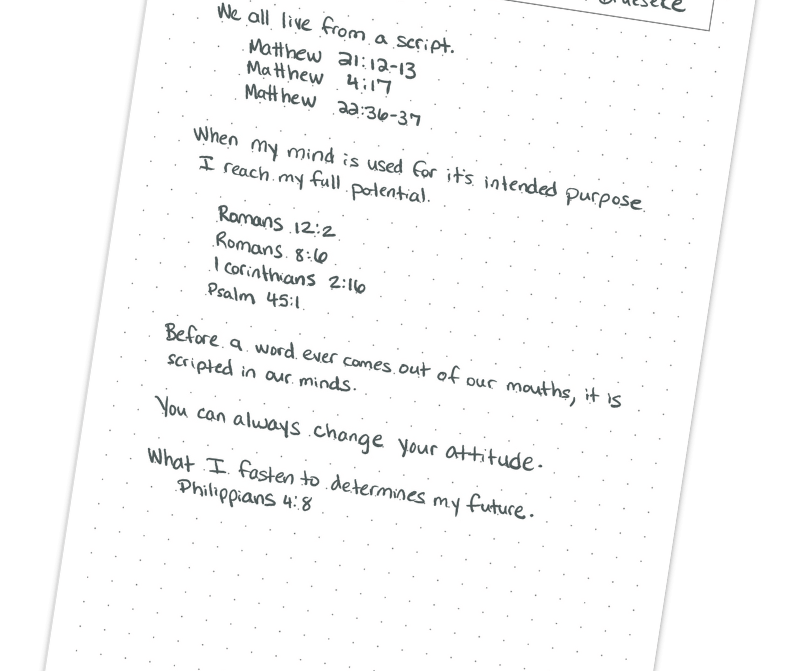 We all live from a script.
Matthew 21:12-13
Matthew 4:17
Matthew 22:36-37
When my mind is used for it's intended purpose
I reach my full potential.
Romans 12:2
Romans 8:6
1 corinthians 2:16
Psalm 45:1
Before a word ever comes out of our mouths, it is
scripted in our minds.
You can always change your attitude.
What I fasten to determines my future.
Philippians 4:8